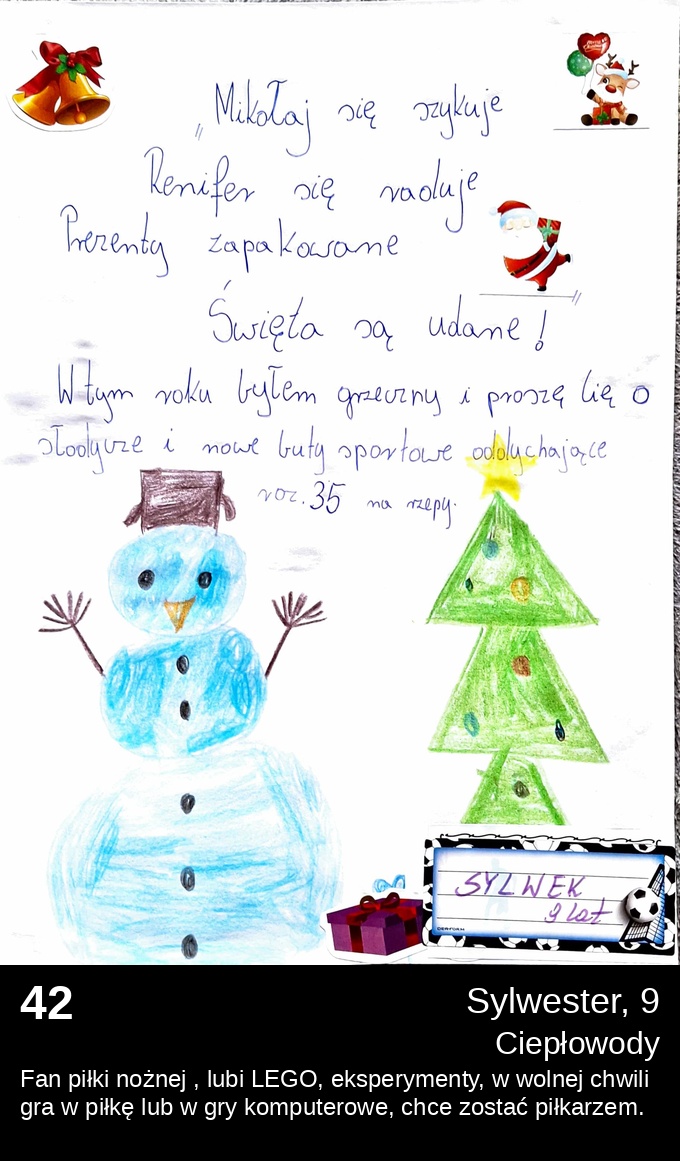 „Mikołaj się szykuje
Renifer się raduje
Prezenty zapakowane
Święta są udane!"
W tym roku byłem grzeczny i proszę Cię o
słodycze i nowe buty sportowe oddychające
roz. 35 na rzepy.
SYLWEK
9 lat
DERFORM
42
Sylwester, 9
Ciepłowody
Fan piłki nożnej , lubi LEGO, eksperymenty, w wolnej chwili
gra w piłkę lub w gry komputerowe, chce zostać piłkarzem.